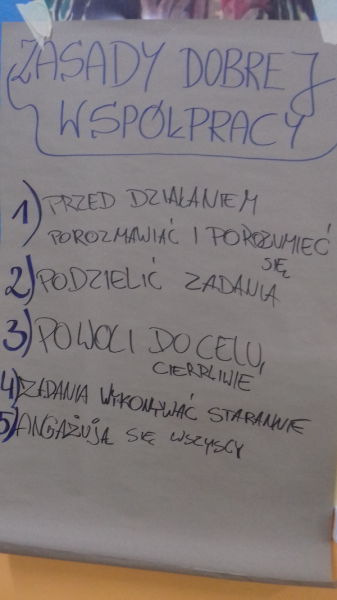 ZASADY DOBREJ
WSPÓŁPRACY
1) PRZED DZIAŁANIEM
POROZMAWIAĆ I POROZUMIEĆ
SIĘ
2) PODZIELIĆ ZADANIA
3) POWOLI DO CELU,
CIERPLIWIE
4) ZADANIA WYKONYWAĆ STARANNIE
5) ANGAŻUJĄ SIĘ WSZYSCY